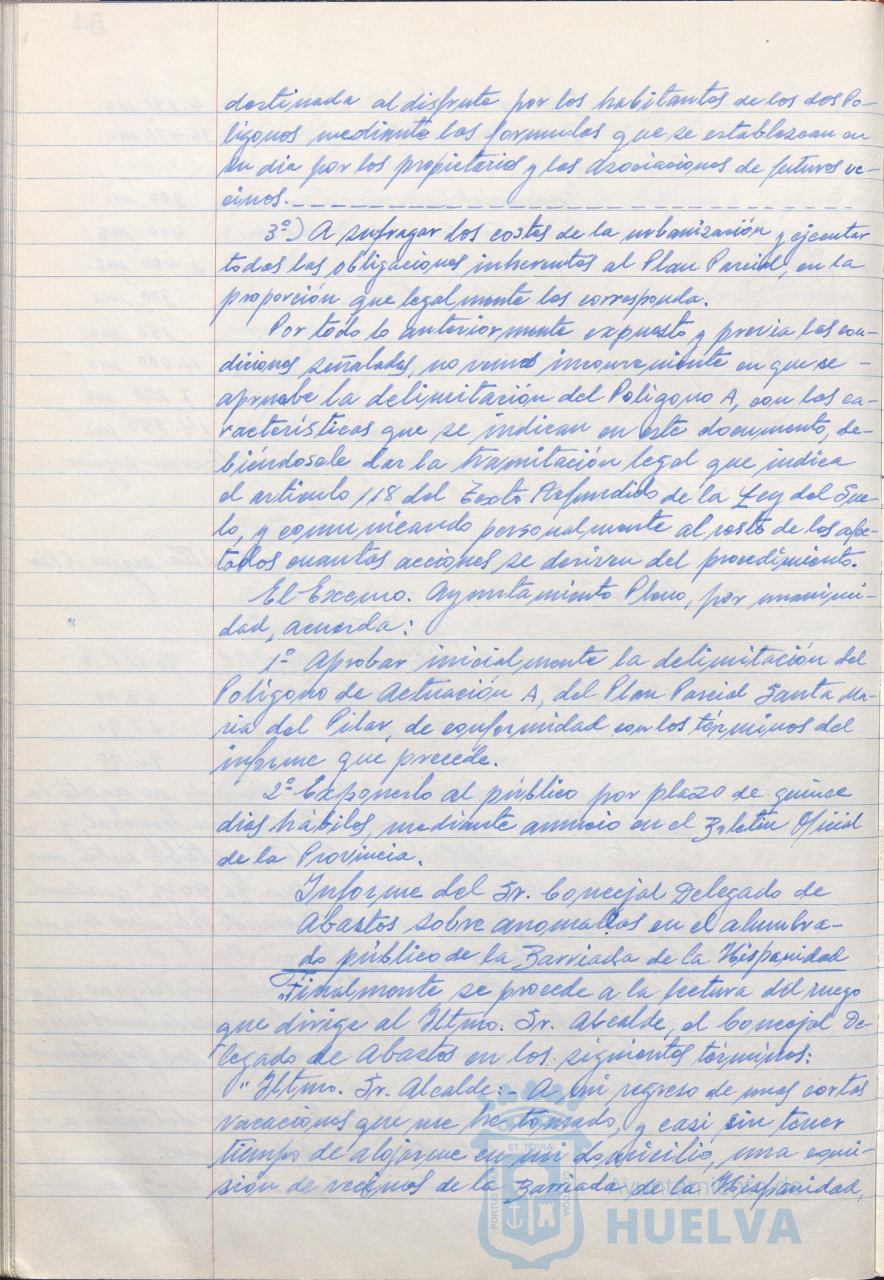 destinada al disfrute por los habitantes de los dos Po-
lígonos mediante las fórmulas que se establezcan en
su día por los propietarios y las asociaciones de futuros ve-
cinos.
3º.) A sufragar los costes de la urbanización y ejecutar
todas las obligaciones inherentes al Plan Parcial, en la
proporción que legalmente les corresponda.
Por todo lo anteriormente expuesto y previa las con-
diciones señaladas, no vemos inconveniente en que se
apruebe la delimitación del Polígono A, con las ca-
racterísticas que se indican en este documento, de-
biéndosele dar la tramitación legal que indica
el artículo 118 del Texto Refundido de la Ley del Sue-
lo, y comunicando personalmente al resto de los afec-
tados cuantas acciones se deriven del procedimiento.
El Excmo. Ayuntamiento Pleno, por unanimi-
dad, acuerda:
1º Aprobar inicialmente la delimitación del
Polígono de Actuación A, del Plan Parcial Santa Ma-
ria del Pilar, de conformidad con los términos del
informe que precede.
2º Exponerlo al público por plazo de quince
días hábiles, mediante anuncio en el Boletín Oficial
de la Provincia.
Informe del Sr. Concejal Delegado de
Abastos sobre anomalías en el alumbra-
do público de la Barriada de la Hispanidad
Finalmente se procede a la lectura del ruego
que dirige al Iltmo. Sr. Alcalde, el Concejal De-
legado de Abastos en los siguientes términos:
"Iltmo. Sr. Alcalde:- A mi regreso de unas cortas
vacaciones que me he tomado, y casi sin tener
tiempo de alojarme en mi domicilio, una comi-
sión de vecinos de la Barriada de la Hispanidad,
Ayuntamiento de
HUELVA